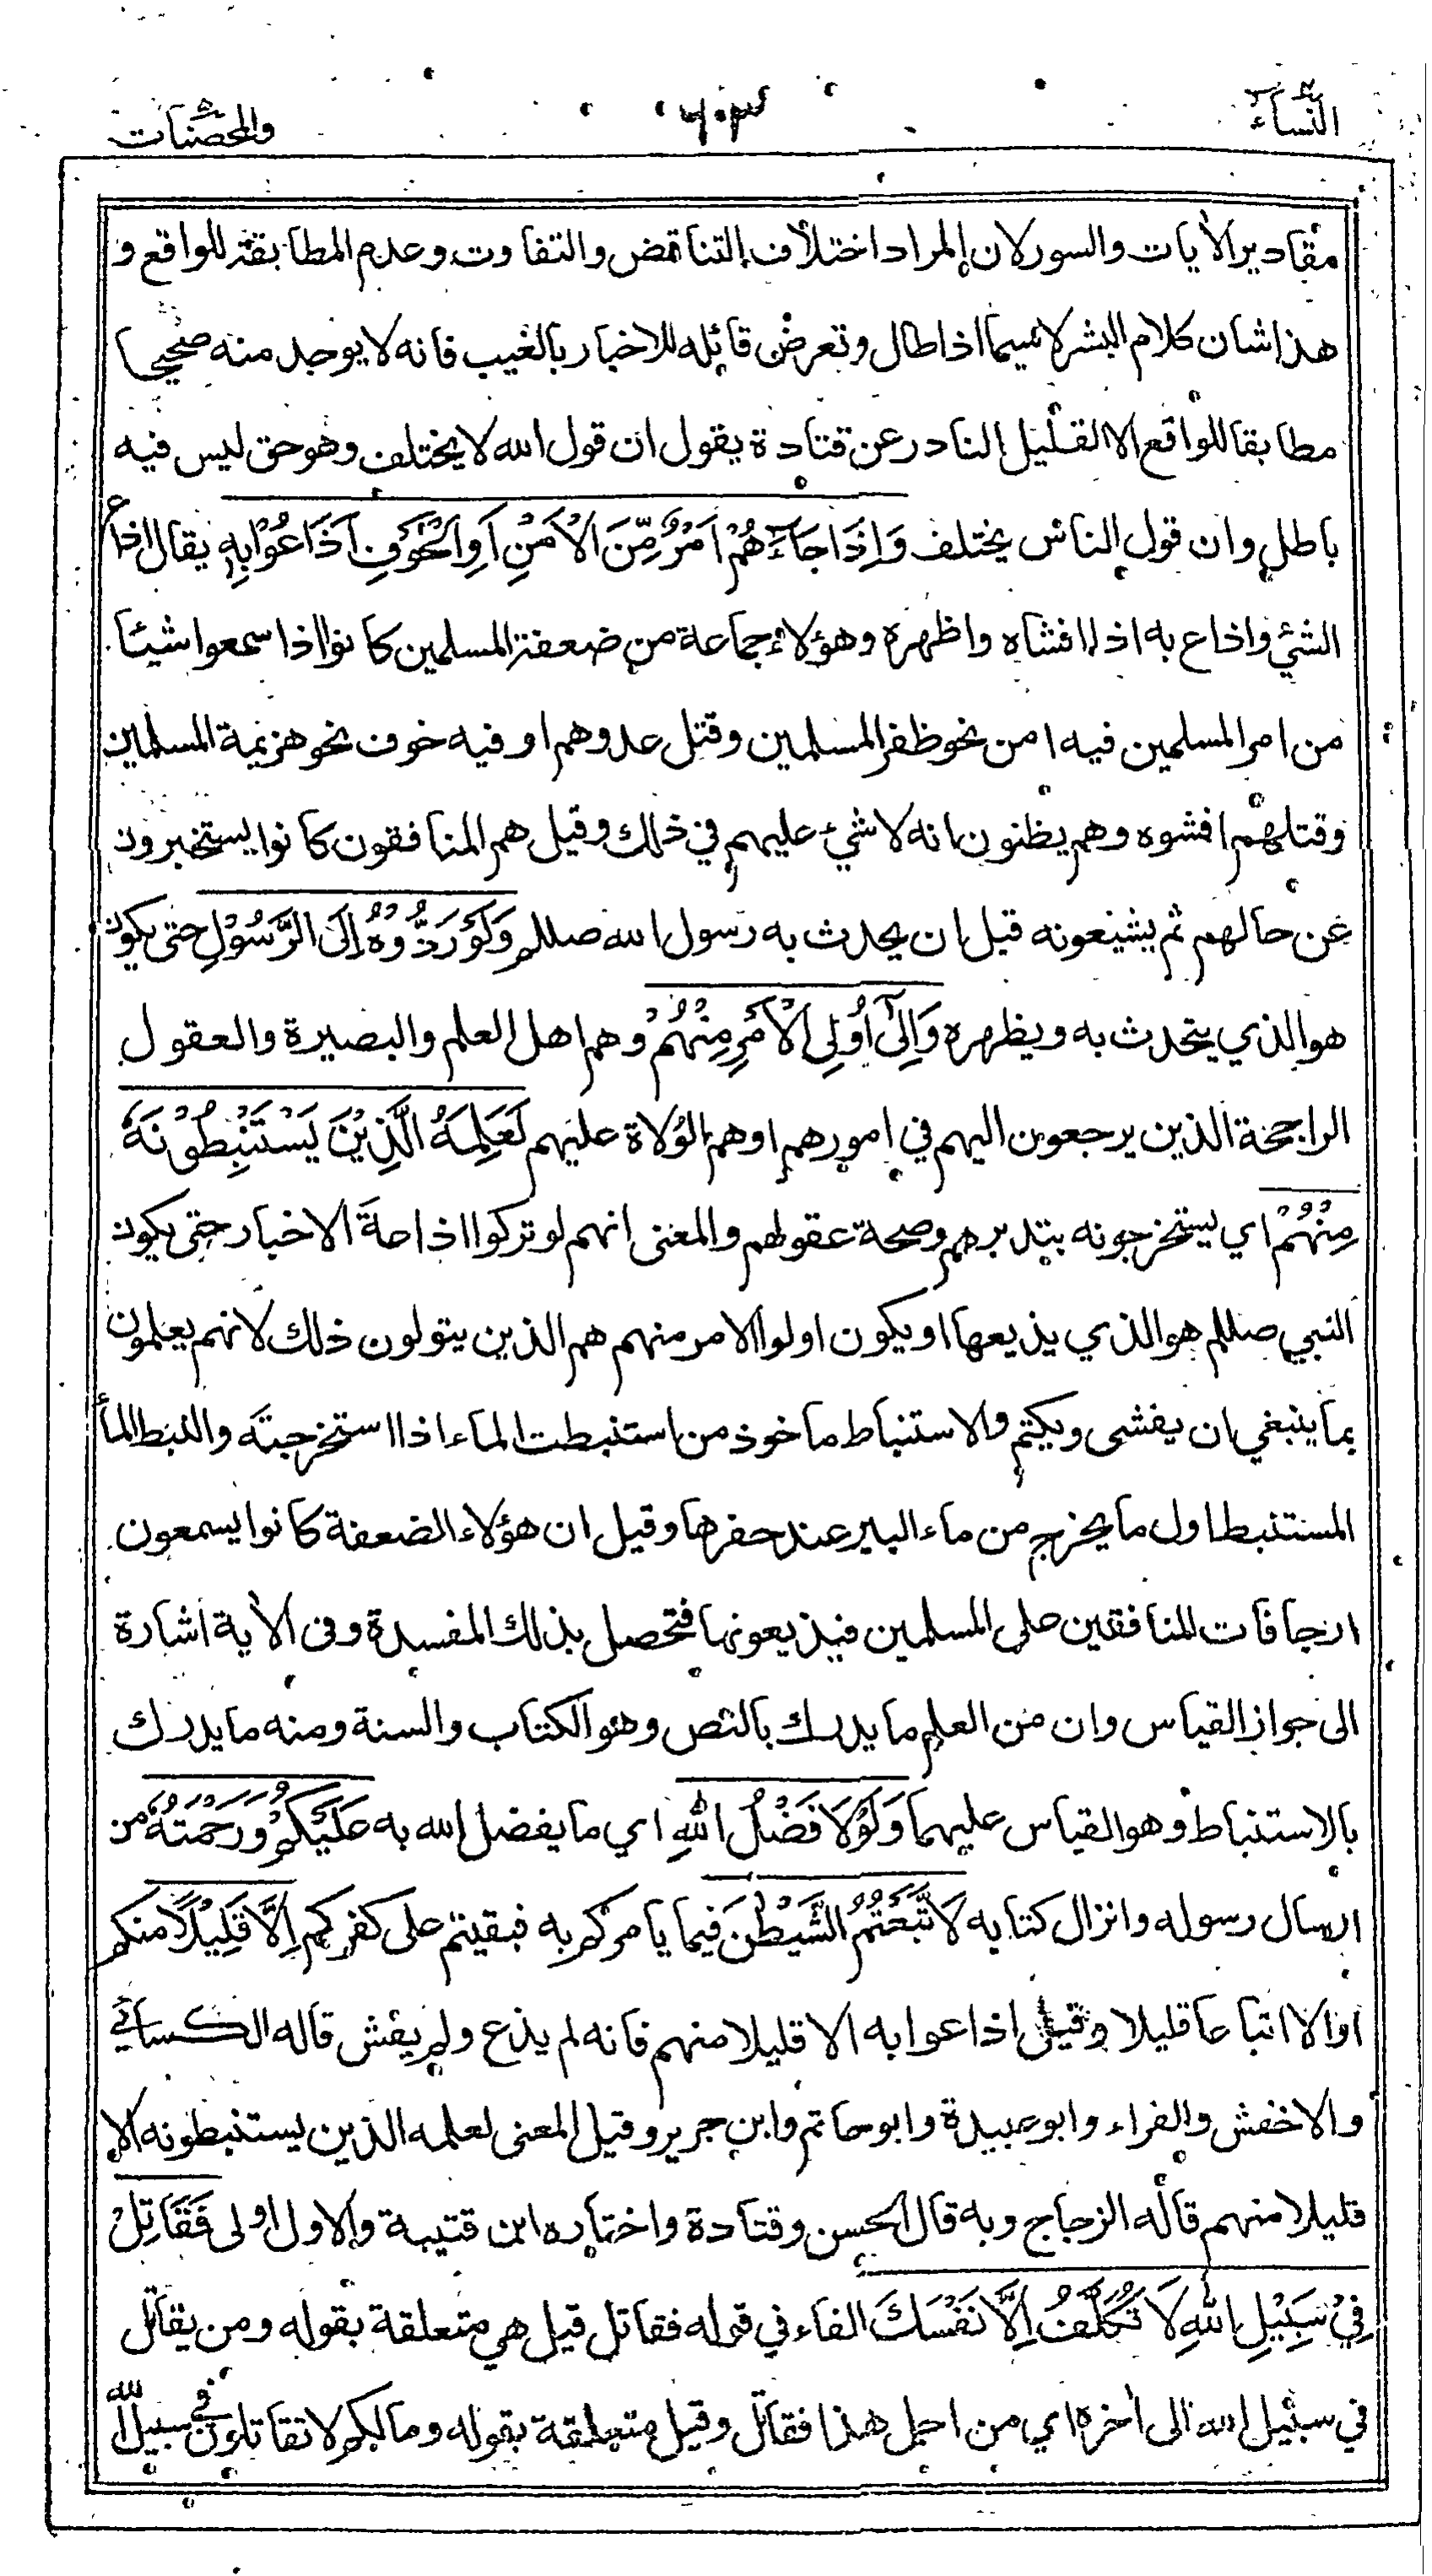 النساء ٦٠٣ والمحصنات
مقادير الأيات والسور لان المراد اختلاف التناقض والتفاوت وعدم المطابقة للواقع و
هذا شان كلام البشر لا سيما اذا طال وتعرض قائله للاخبار بالغيب فانه لا يوجد منه صحيحا
مطابقا للواقع الا القليل النادر عن قتادة يقول ان قول الله لا يختلف وهو حق ليس فيه
باطل وان قول الناس يختلف وَاِذَا جَاءَهُمْ اَمْرٌ مِّنَ الْاَمْنِ اَوِ الْخَوْفِ اَذَاعُوْا بِهٖ يقال اذاع
الشئ واذاع به اذا افشاه واظهره وهؤلاء جماعة من ضعفة المسلمين كانوا اذا سمعوا شيئا
من امر المسلمين فيه امن نحو ظفر المسلمين وقتل عدوهم او فيه خوف نحو هزيمة المسلمين
وقتلهم افشوه وهم يظنون انه لا شئ عليهم في ذلك وقيل هم المنافقون كانوا يستخبرون
عن حالهم ثم يشيعونه قبل ان يحدث به رسول الله صللم وَلَوْ رَدُّوْهُ اِلَى الرَّسُوْلِ حتى يكون
هو الذي يتحدث به ويظهره وَاِلٰٓى اُولِى الْاَمْرِ مِنْهُمْ وهم اهل العلم والبصيرة والعقول
الراجحة الذين يرجعون اليهم في امورهم او هم الولاة عليهم لَعَلِمَهُ الَّذِيْنَ يَسْتَنْبِطُوْنَهٗ
مِنْهُمْ اي يستخرجونه بتدبرهم وصحة عقولهم والمعنى انهم لو تركوا اذاعة الاخبار حتى يكون
النبي صللم هو الذي يذيعها او يكون اولوا الامر منهم هم الذين يتولون ذلك لانهم يعلمون
بما ينبغي ان يفشى ويكتم والاستنباط ماخوذ من استنبطت الماء اذا استخرجته والنبط الماء
المستنبط اول ما يخرج من ماء البير عند حفرها وقيل ان هؤلاء الضعفة كانوا يسمعون
ارجافات المنافقين على المسلمين فيذيعونها فتحصل بذلك المفسدة وفى الأية اشارة
الى جواز القياس وان من العلم ما يدرك بالنص وهو الكتاب والسنة ومنه ما يدرك
بالاستنباط وهو القياس عليهما وَلَوْلَا فَضْلُ اللهِ اي ما يفضل الله به عَلَيْكُمْ وَرَحْمَتُهٗ من
ارسال رسوله وانزال كتابه لَاتَّبَعْتُمُ الشَّيْطٰنَ فيما يامركم به فبقيتم على كفركم اِلَّا قَلِيْلًا منكم
او الا اتباعا قليلا وقيل اذاعوا به الا قليلا منهم فانه لم يذع ولم يفش قاله الكسائي
والاخفش والفراء وابو عبيدة وابو حاتم وابن جرير وقيل المعنى لعلمه الذين يستنبطونه الا
قليلا منهم قاله الزجاج وبه قال الحسن وقتادة واختاره ابن قتيبة والاول اولى فَقَاتِلْ
فِيْ سَبِيْلِ اللهِ لَا تُكَلَّفُ اِلَّا نَفْسَكَ الفاء في قوله فقاتل قيل هي متعلقة بقوله ومن يقاتل
في سبيل الله الى أخره اي من اجل هذا فقاتل وقيل متعلقة بقوله وما لكم لا تقاتلون في سبيل الله